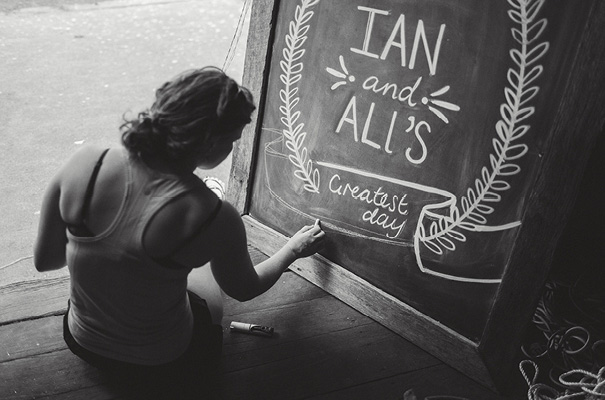 IAN
and
ALL'S
Greatest
day